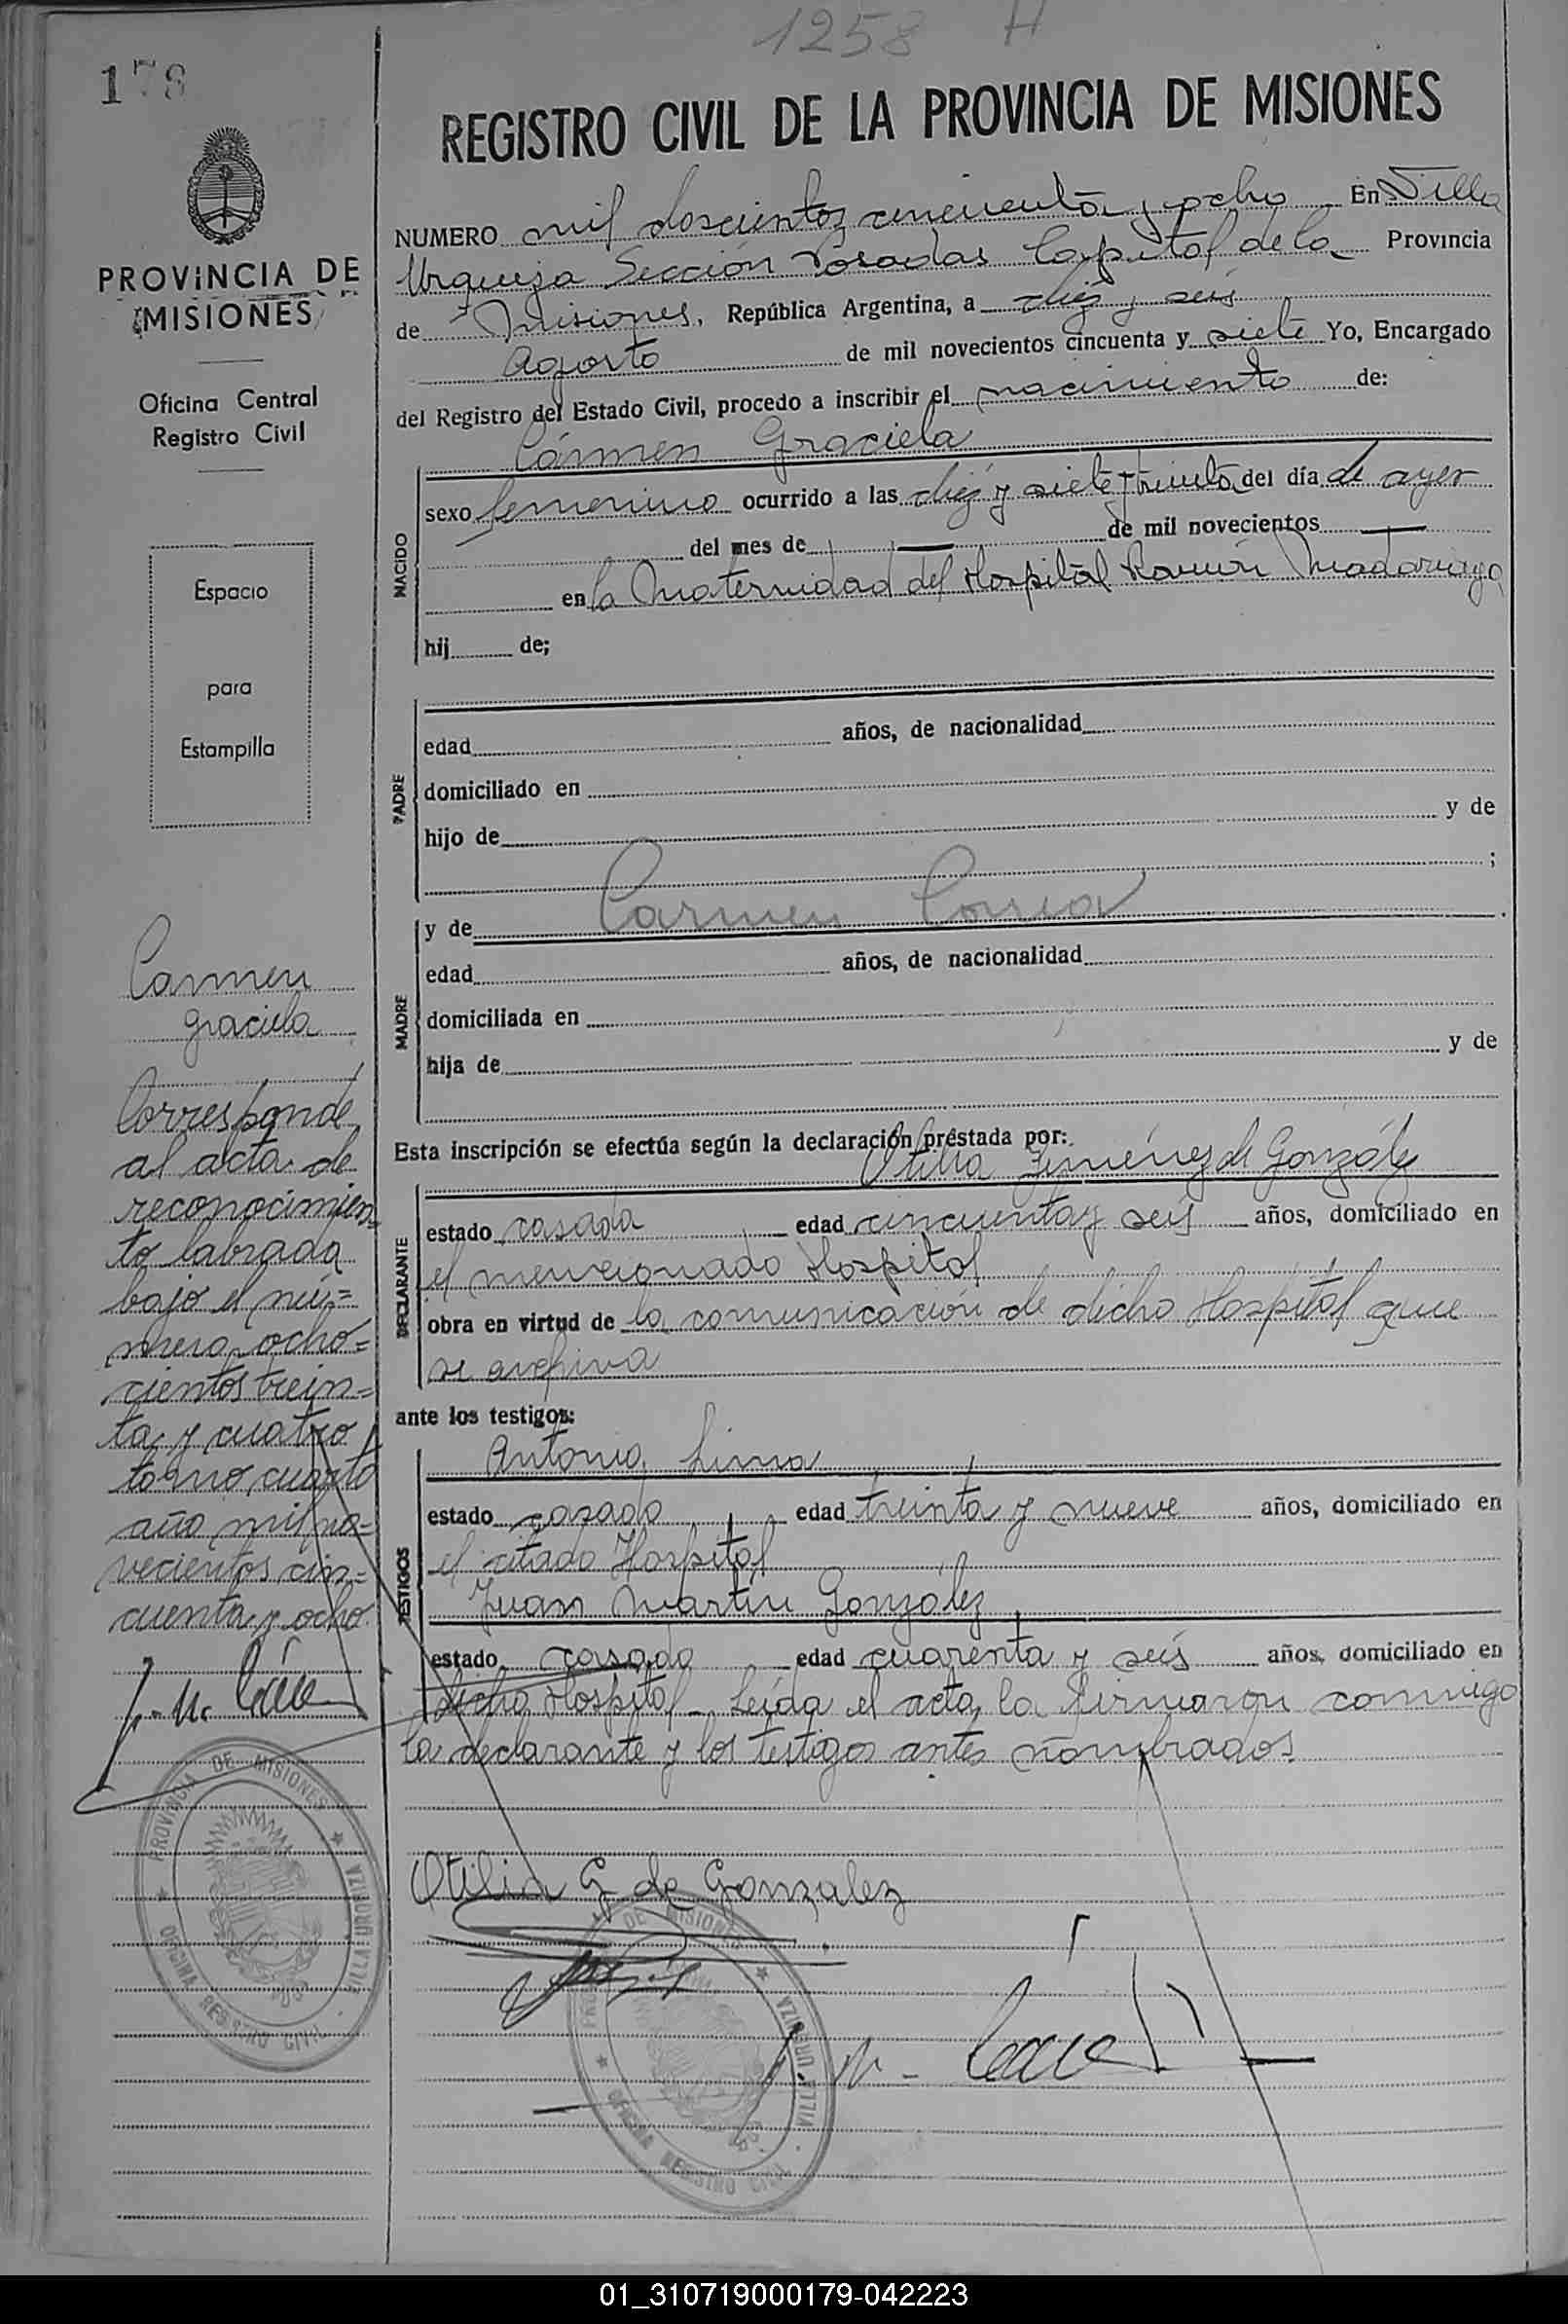 1258 H
178
REGISTRO CIVIL DE LA PROVINCIA DE MISIONES
PROVINCIA DE
MISIONES
Oficina Central
Registro Civil
Espacio
para
Estampilla
NUMERO mil doscientos cincuenta y ocho En Villa
Urquiza Sección Posadas Capital de la Provincia
de Misiones, República Argentina, a diez y seis
Agosto de mil novecientos cincuenta y siete Yo, Encargado
del Registro del Estado Civil, procedo a inscribir el nacimiento de:
Cármen Graciela
NACIDO
sexo femenino ocurrido a las diez y siete y treinta del día de ayer
del mes de — de mil novecientos —
en la Maternidad del Hospital Ramón Madariaga
hij de;
PADRE
edad años, de nacionalidad
domiciliado en
hijo de y de
;
y de Carmen Correa
MADRE
edad años, de nacionalidad
domiciliada en
hija de y de
Esta inscripción se efectúa según la declaración prestada por:
Otilia Giménez de González
DECLARANTE
estado casada edad cincuenta y seis años, domiciliado en
el mencionado Hospital
obra en virtud de la comunicación de dicho Hospital que
se archiva
ante los testigos:
Antonio Lima
TESTIGOS
estado casado edad treinta y nueve años, domiciliado en
el citado Hospital
Juan Martín González
estado casado edad cuarenta y seis años, domiciliado en
dicho Hospital - Leída el acta, la firmaron conmigo
la declarante y los testigos antes nombrados.
Otilia G de Gonzalez
Carmen
Graciela
Corresponde
al acta de
reconocimien-
to labrada
bajo el nú=
mero ocho=
cientos trein=
ta y cuatro
tomo cuarto
año mil no=
vecientos cin=
cuenta y ocho.
PROVINCIA DE MISIONES
VILLA URQUIZA
OFICINA REGISTRO CIVIL
DE MISIONES
VILLA URQUIZA
OFICINA REGISTRO CIVIL
01_310719000179-042223